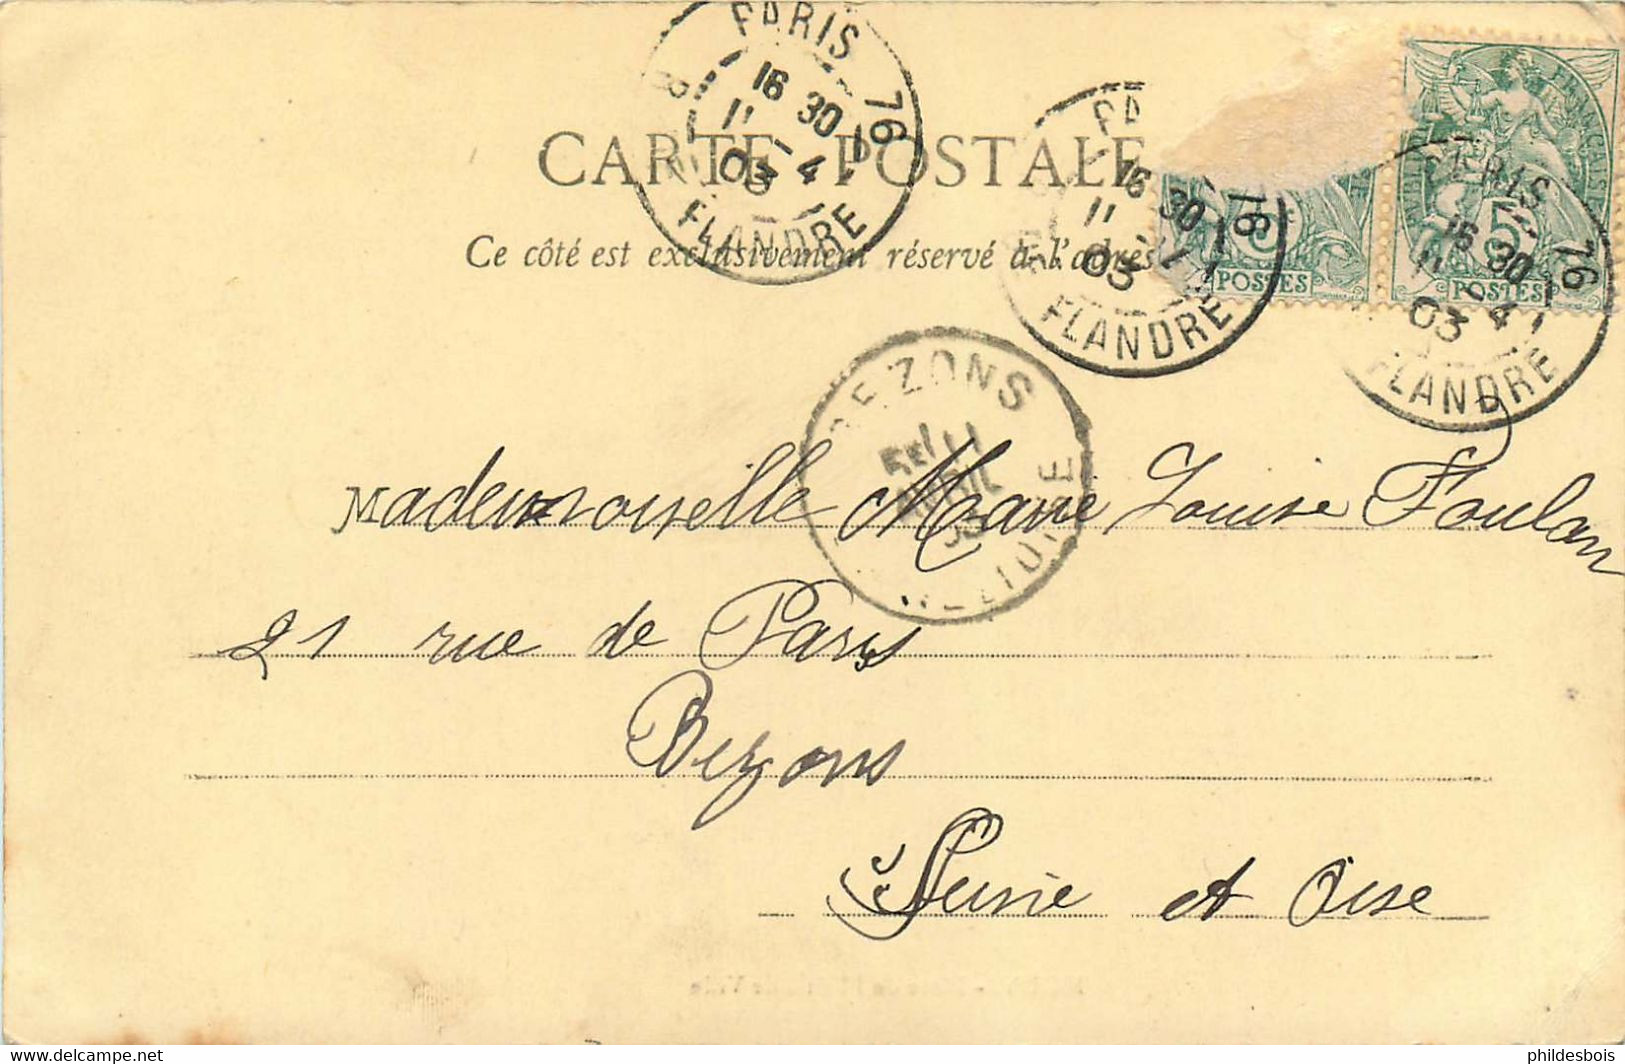 PARIS 76
16 30
11 - 4
03
R. FLANDRE
CARTE POSTALE
Ce côté est exclusivement réservé à l'adres
PA 76
16 30
11
03
FLANDRE
5
POSTES
FRANÇAISE
PARIS 76
16 30
11 4
03
FLANDRE
5
POSTES
BEZONS
11
AVRIL
03
SEINE-ET-OISE
Mademoiselle Marie Louise Foulon
21 rue de Paris
Bezons
Seine et Oise
phildesbois